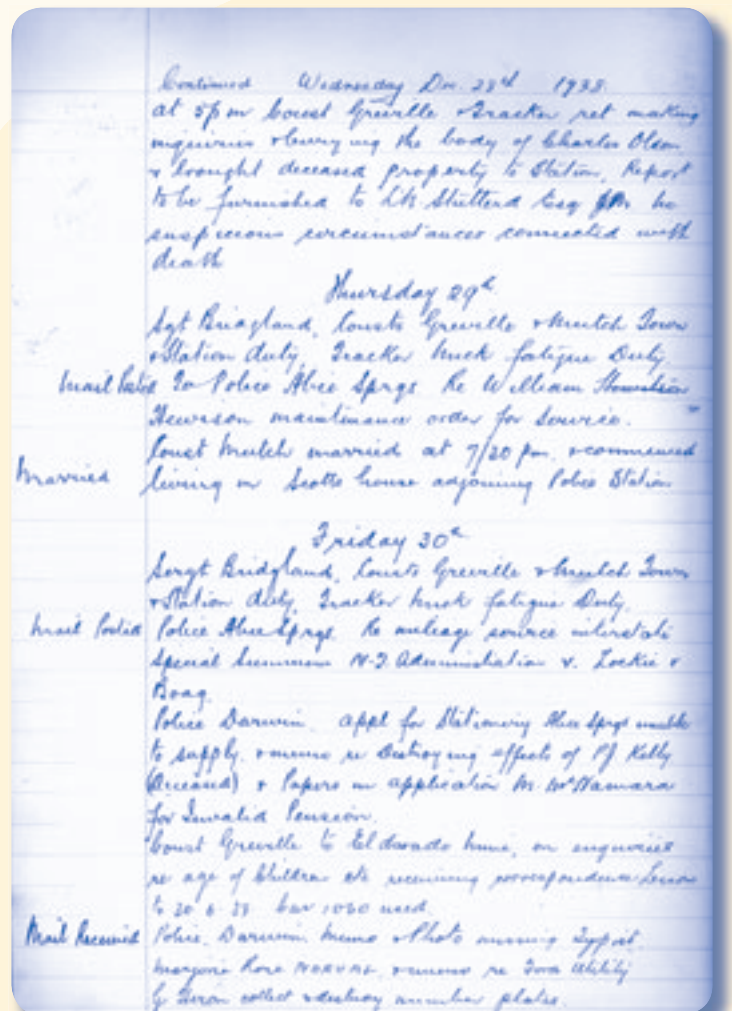 Continued Wednesday Dec. 28th 1938.
at 5pm Const Greville & Tracker ret making
inquiries & burying the body of Charles Olsen
& brought deceased property to Station, Report
to be furnished to Esq JM no
suspicious circumstances connected with
death
Thursday 29th
Sgt Bridgland, Consts Greville & Mutch Town
& Station duty, Tracker Mick fatigue Duty,
Mail Posted To Police Alice Sprgs Re William
Hewison maintenance order for service.
Const Mutch married at 7/20 pm. & commenced
Married living in Scotts house adjoining Police Station
Friday 30th
Sergt Bridgland, Consts Greville & Mutch Town
& Station duty, Tracker Mick fatigue Duty.
Mail Posted Police Alice Sprgs Re mileage source interstate
Special Summons N.T. Administration v. Lockie &
Boag
Police Darwin. appl for Stationery Alice Sprgs unable
to supply. & memo re Destroying effects of PJ Kelly
(Deceased) & Papers in application M. McNamara
for Invalid Pension.
Const Greville to Eldorado Mine, on enquiries
re age of Children etc receiving correspondence
to 30 6 39 Car 1030 used.
Mail Received Police Darwin Memo & Photo missing Typist
Marjorie Rose NORVAL, & memo re Utility
collect & destroy number plates.